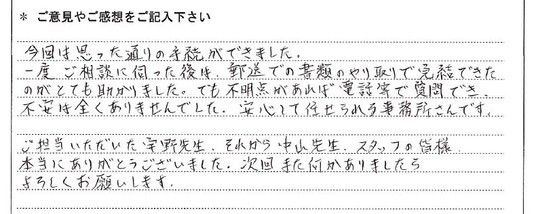 * ご意見やご感想をご記入下さい
今回は思った通りの手続ができました。
一度 ご相談に伺った後は、郵送での書類のやり取りで完結できた
のがとても助かりました。でも不明点があれば電話等で質問でき、
不安は全くありませんでした。安心して任せられる事務所さんです。
ご担当いただいた宇野先生、それから中山先生、スタッフの皆様
本当にありがとうございました。次回また何かありましたら
よろしくお願いします。